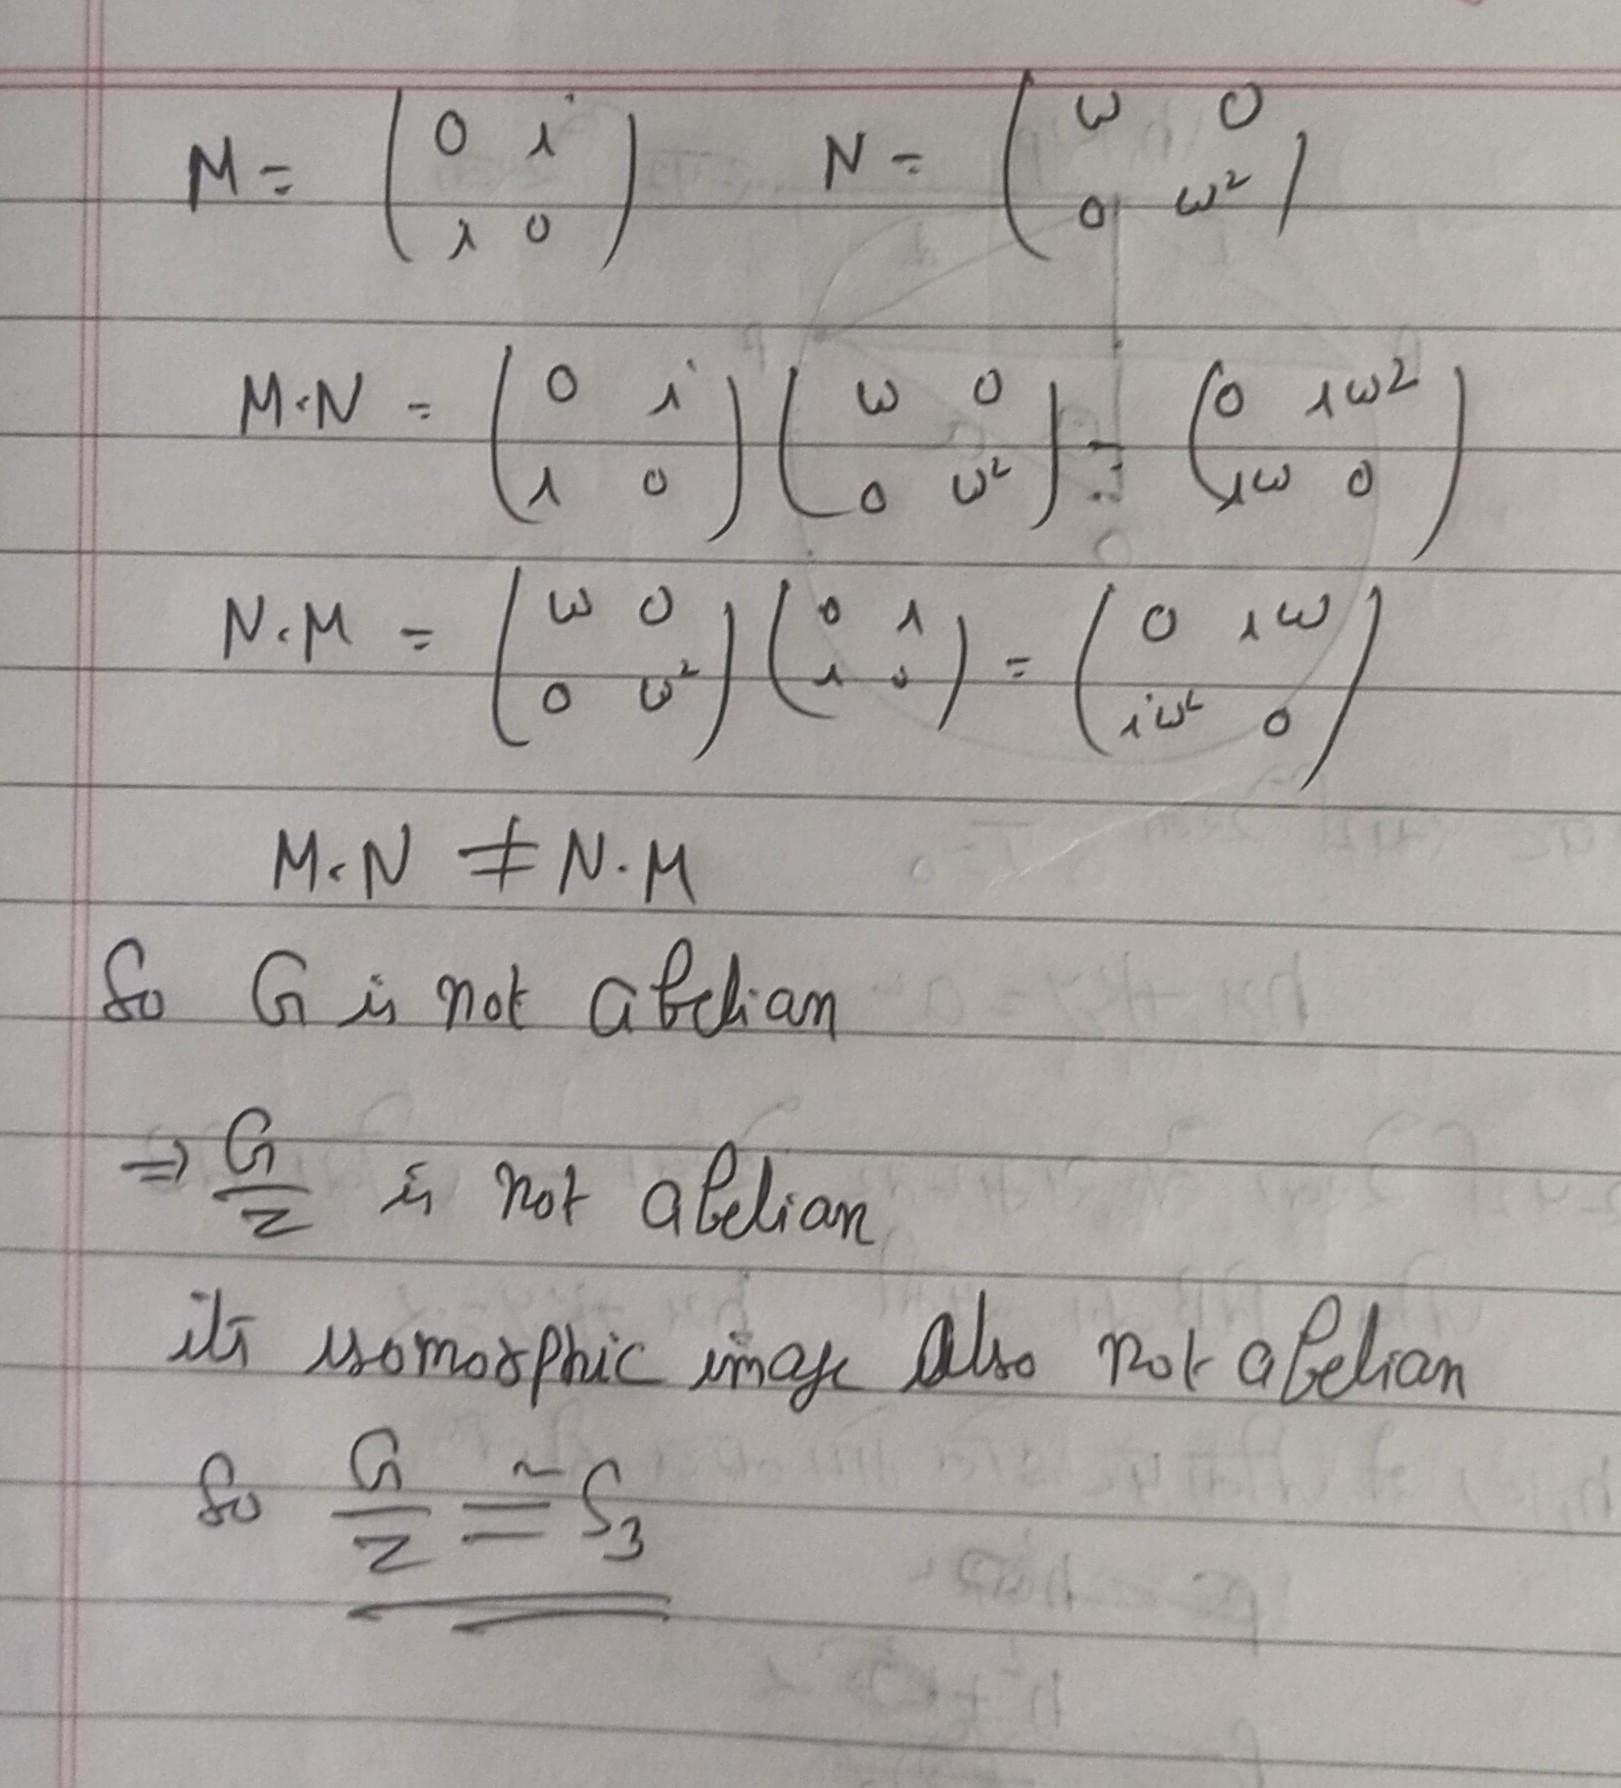 M = ( 0 i ; i 0 ) N = ( ω 0 ; 0 ω² )
M·N = ( 0 i ; i 0 ) ( ω 0 ; 0 ω² ) = ( 0 iω² ; iω 0 )
N·M = ( ω 0 ; 0 ω² ) ( 0 i ; i 0 ) = ( 0 iω ; iω² 0 )
M·N ≠ N·M
So G is not abelian
⇒ G/Z is not abelian
its isomorphic image also not abelian
So G/Z ≅ S₃